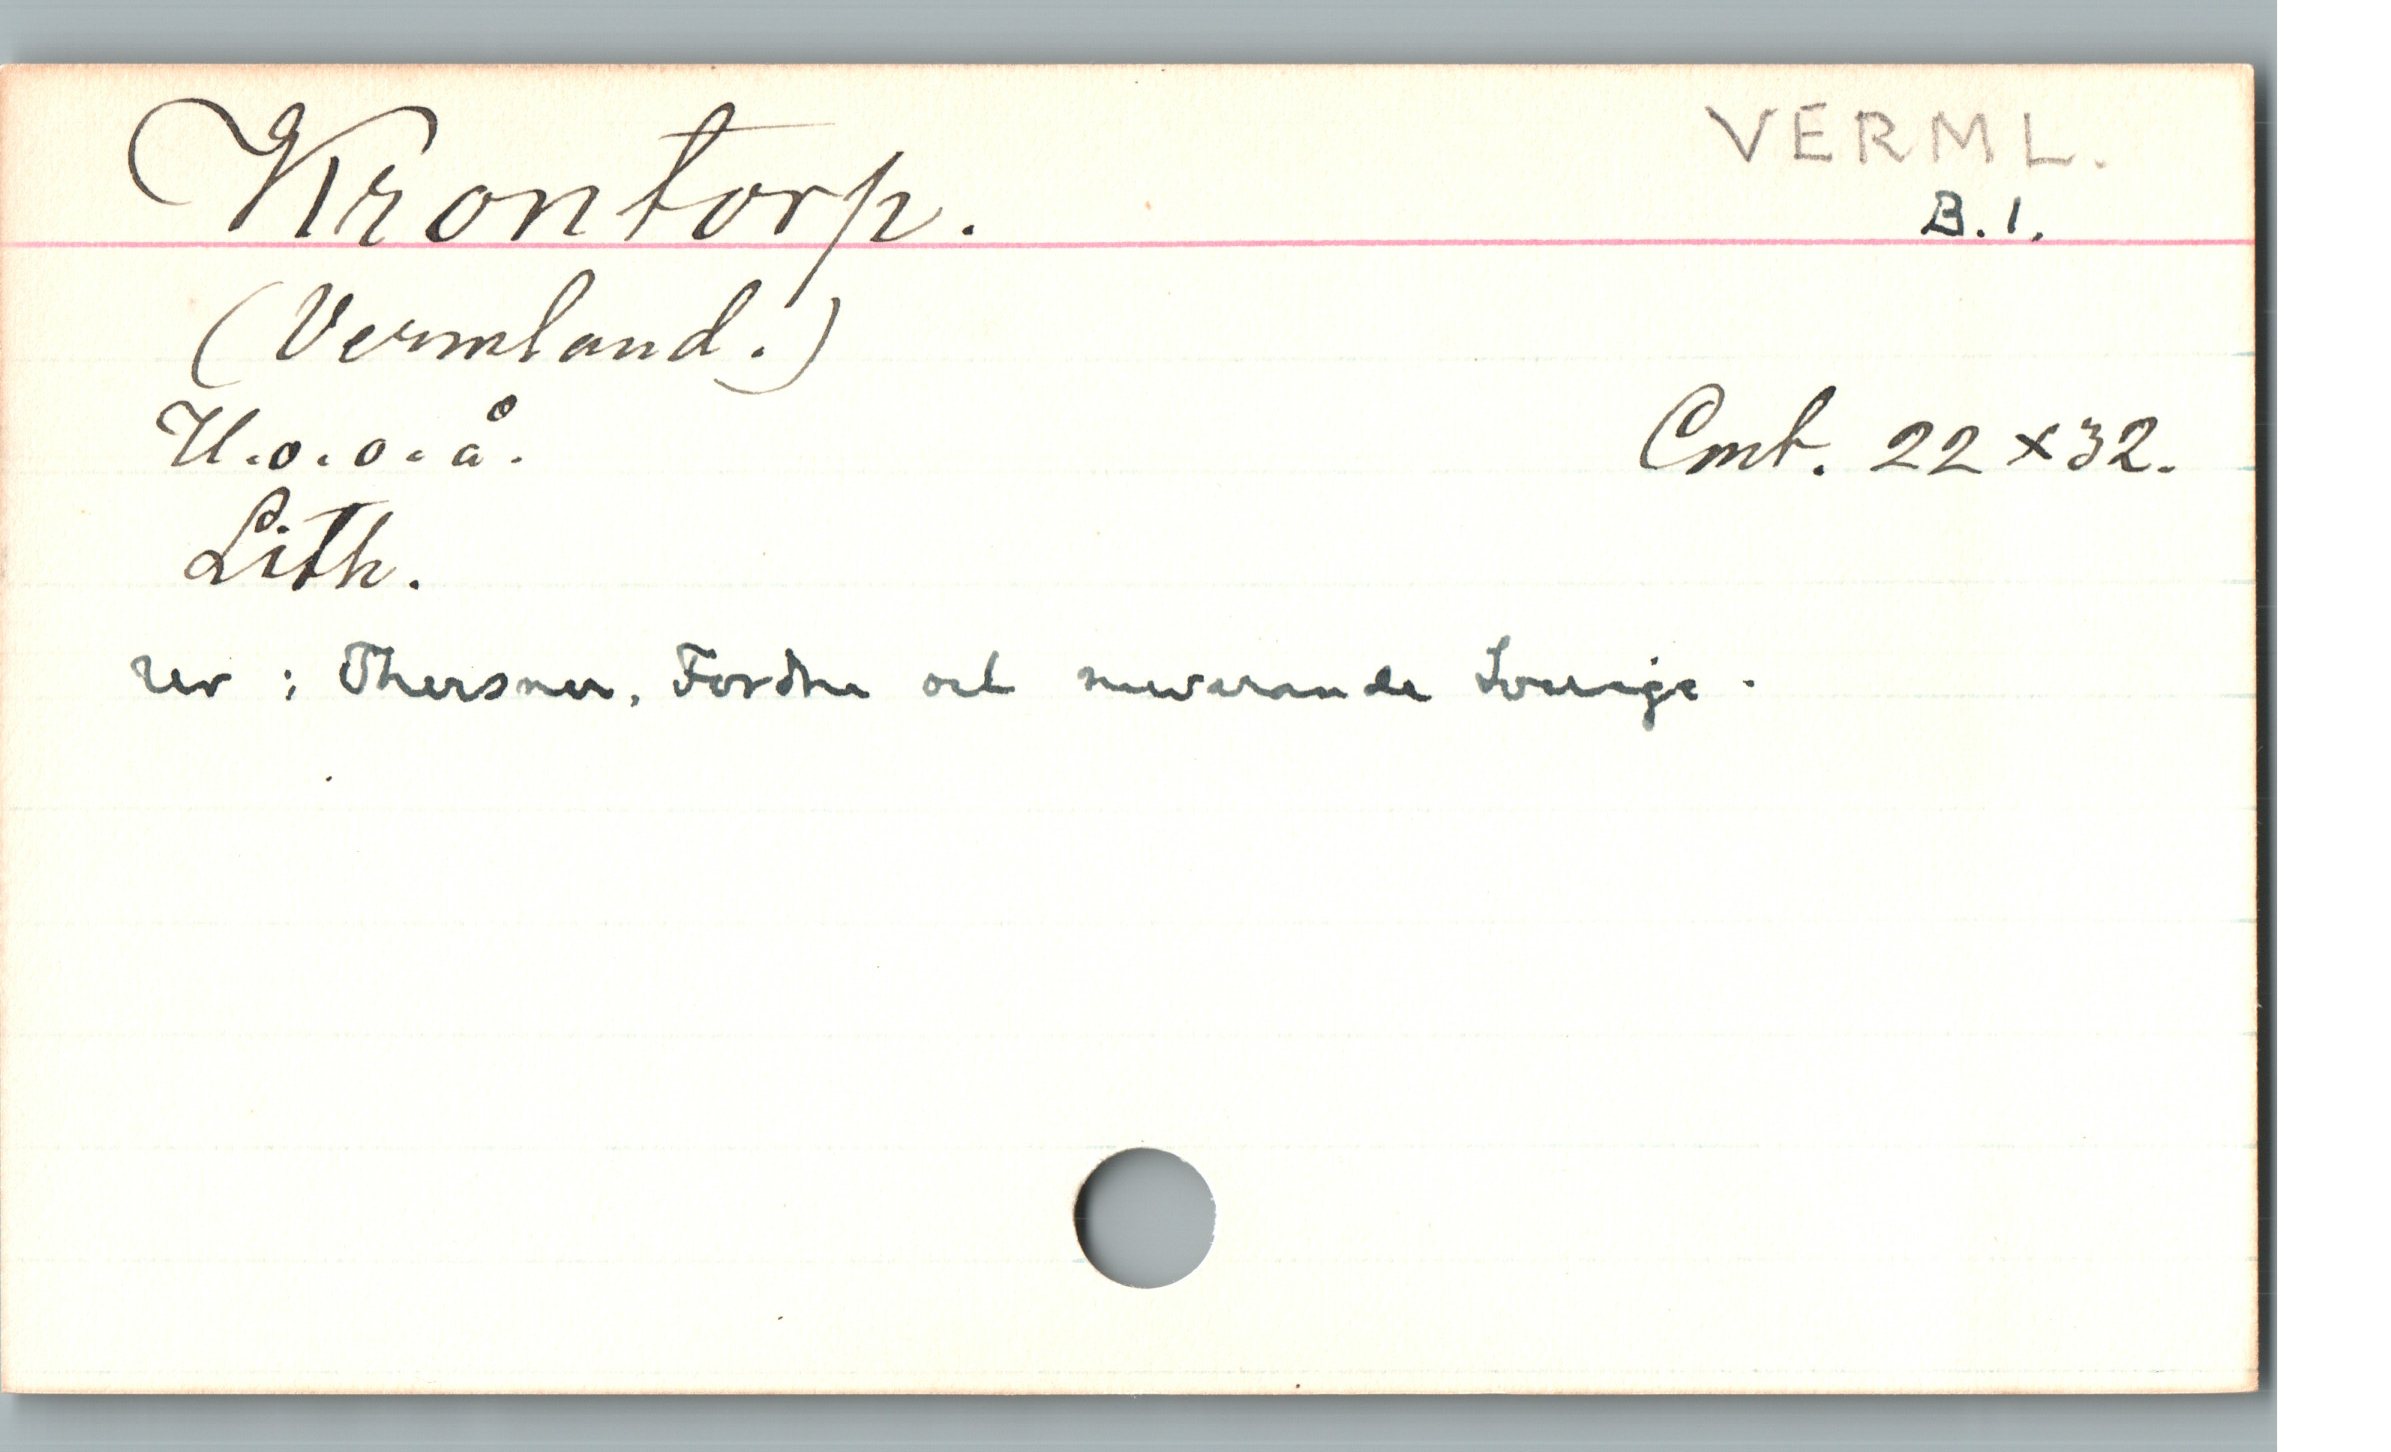 Krontorp.
VERML.
B.1.
(Vermland.)
U.o.o.å.
Cmt. 22 x 32.
Lith.
ur: Thersner, Fordna och nuvarande Sverige.